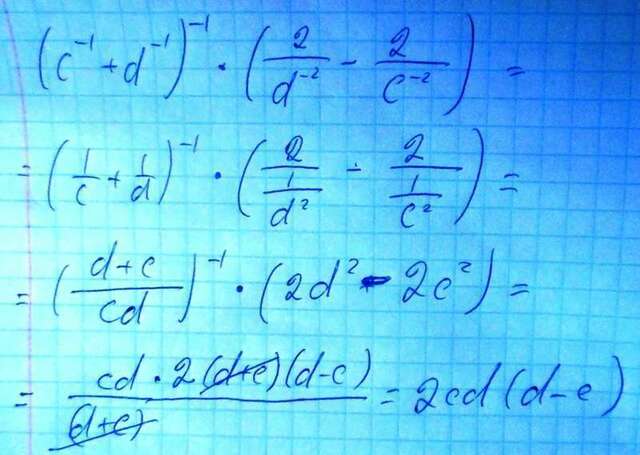 (c⁻¹ + d⁻¹)⁻¹ · (2/d⁻² - 2/c⁻²) =
= (1/c + 1/d)⁻¹ · (2/(1/d²) - 2/(1/c²)) =
= ((d+c)/cd)⁻¹ · (2d² - 2c²) =
= (cd · 2(d+c)(d-c))/(d+c) = 2cd(d-c)